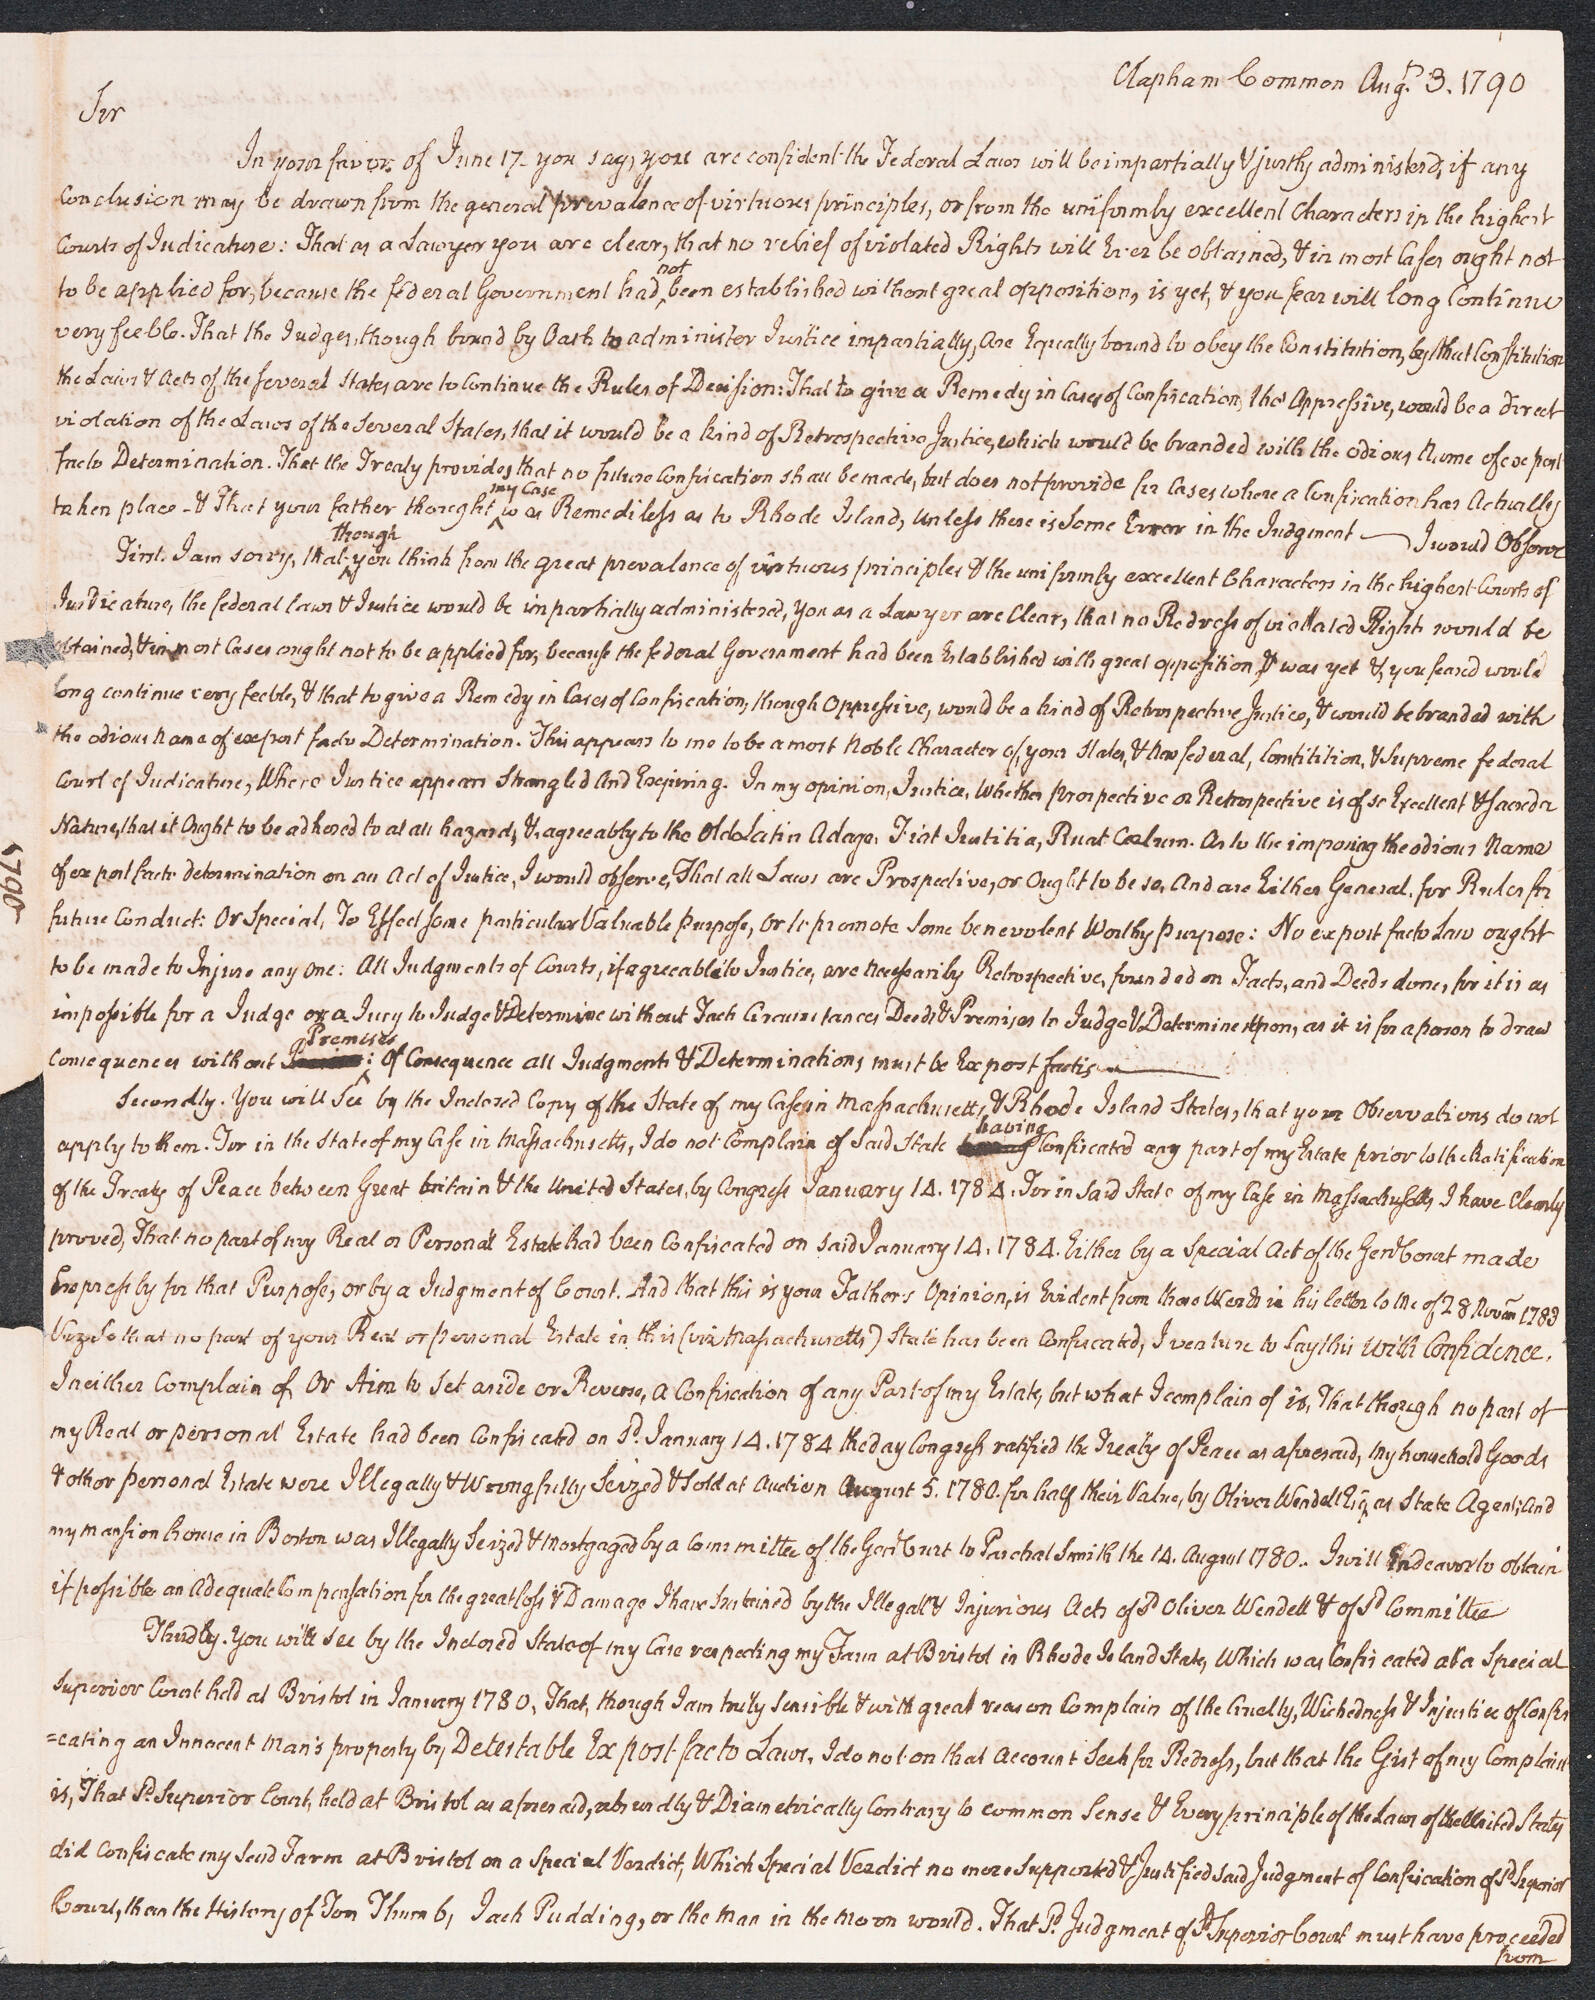 Clapham Common Augt. 3. 1790
Sir
In your favor of June 17- you say, you are confident the Federal Laws will be impartially & justly administerd, if any
Conclusion may be drawn from the general prevalence of virtuous principles, or from the uniformly excellent Characters in the highest
Courts of Judicature: That as a Lawyer you are clear, that no relief of violated Rights will Ever be obtained, & in most Cases ought not
to be applied for, because the federal Government had not been established without great opposition, is yet, & you fear will long Continue
very feeble. That the Judges, though bound by Oath to administer Justice impartially, Are Equally bound to obey the Constitution, by that Constitution
the Laws & Acts of the several States are to Continue the Rules of Decision: That to give a Remedy in Cases of Confiscation, tho' Oppressive, would be a direct
violation of the Laws of the Several States, that it would be a kind of Retrospective Justice, which would be branded with the odious Name of ex post
facto Determination. That the Treaty provides that no future Confiscation shall be made, but does not provide for Cases where a Confiscation has Actually
taken place - & That your father thought my Case was Remediless as to Rhode Island, Unless there is Some Error in the Judgment — I would Observe
First. I am sorry, that though you think from the great prevalence of virtuous principles & the uniformly excellent Characters in the highest Courts of
Judicature, the federal laws & Justice would be impartially administered, You as a Lawyer are Clear, that no Redress of violated Rights would be
obtained, & in most Cases ought not to be applied for, because the federal Government had been Established with great opposition, & was yet &, you feared would
long continue very feeble, & that to give a Remedy in Cases of Confiscation, though Oppressive, would be a kind of Retrospective Justice, & would be branded with
the odious Name of ex post facto Determination. This appears to me to be a most Noble Character of your States, & New federal, Constitition, & Supreme federal
Court of Judicature, Where Justice appears Strangled And Expiring. In my opinion, Justice, Whether prospective or Retrospective is of so Excellent & Sacred a
Nature, that it Ought to be adhered to at all hazards, & agreeably to the Old Latin Adage. Fiat Justitia, Ruat Cœlum. As to the imposing the odious Name
of ex post facto determination on an Act of Justice, I would observe, That all Laws are Prospective, or Ought to be so, And are Either General, for Rules for
future Conduct: Or Special, To Effect some particular Valuable Purpose, or to promote Some benevolent Worthy Purpose: No ex post facto Law ought
to be made to Injure any One: All Judgments of Courts, if agreeable to Justice, are Necessarily Retrospective, founded on Facts, and Deeds done, for it is as
impossible for a Judge or a Jury to Judge & Determine without Facts Circumstances Deeds & Premises to Judge & Determine upon, as it is for a person to draw
Consequences without Premises: Of Consequence all Judgments & Determinations must be Ex post factis
Secondly. You will See by the Inclosed Copy of the State of my Case in Massachusetts, & Rhode Island States, that your Observations do not
apply to them. For in the State of my Case in Massachusetts, I do not Complain of Said State having Confiscated any part of my Estate prior to the Ratification
of the Treaty of Peace between Great britain & the United States, by Congress January 14. 1784. For in Said State of my Case in Massachusetts, I have Clearly
proved, That no part of my Real or Personal Estate had been Confiscated on said January 14. 1784. Either by a Special Act of the Genl. Court made
Expressly for that Purpose, or by a Judgment of Court. And that this is your Father's Opinion, is Evident from those Words in his letter to Me of 28 Novem 1783
Viz. So that no part of your Real or personal Estate in this (viz Massachusetts) State has been Confiscated, I venture to Say this with Confidence.
I neither Complain of, Or Aim to Set aside or Reverse, a Confiscation of any Part of my Estate, but what I complain of is, That though no part of
my Real or personal Estate had been Confiscated on Sd. January 14. 1784 the day Congress ratified the Treaty of Peace as aforesaid, My household Goods
& other personal Estate were Illegally & Wrongfully Seized & Sold at Auction August 5. 1780. for half their Value, by Oliver Wendell Esq as State Agent; And
my Mansion house in Boston was Illegally Seized & Mortgaged by a Committee of the Genl. Court to Paschal Smith the 14. August 1780. I will Endeavor to obtain
if possible an Adequate Compensation for the great loss & Damage I have Sustained by the Illegal & Injurious Acts of Sd. Oliver Wendell & of Sd. Committee
Thirdly. You will See by the Inclosed State of my Case respecting my Farm at Bristol in Rhode Island State, Which was Confiscated at a Special
Superior Court held at Bristol in January 1780, That, though I am truly Sensible & with great reason Complain of the Cruelty, Wickedness & Injustice of Confis
=cating an Innocent Man's property by Detestable Ex post facto Laws, I do not on that Account Seek for Redress, but that the Gist of my Complaint
is, That Sd. Superior Court, held at Bristol as aforesaid, absurdly & Diametrically Contrary to common Sense & Every principle of the Laws of the United States
did Confiscate my Said Farm at Bristol on a Special Verdict, Which Special Verdict no more Supported & Justified said Judgment of Confiscation of Sd. Superior
Court, than the History of Tom Thumb, Jack Pudding, or the Man in the Moon would. That Sd. Judgment of Sd. Superior Court must have proceeded
from
1790